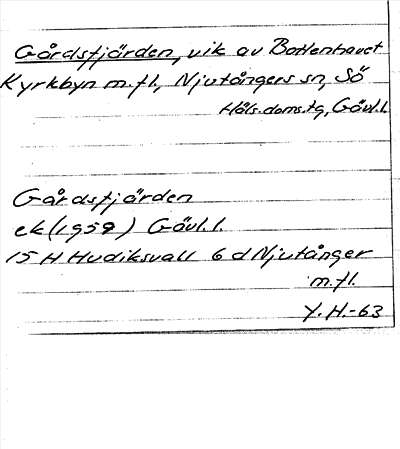 Gårdsfjärden, vik av Bottenhavet
Kyrkbyn m.fl., Njutångers sn, Sö
Häls. doms. tg, Gävl.l.
Gårdsfjärden
ek (1959) Gävl.l.
15 H Hudiksvall 6 d Njutånger
m.fl.
Y.H.-63